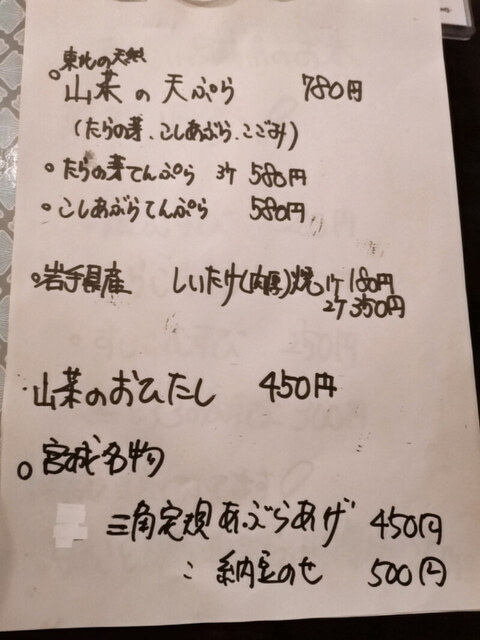 東北の天然
○山菜の天ぷら 780円
(たらの芽、こしあぶら、こごみ)
○たらの芽てんぷら 3ケ 580円
○こしあぶらてんぷら 580円
○岩手県産 しいたけ(肉厚)焼 1ケ 180円
2ケ 350円
・山菜のおひたし 450円
○宮城名物
三角定規あぶらあげ 450円
〃 納豆のせ 500円